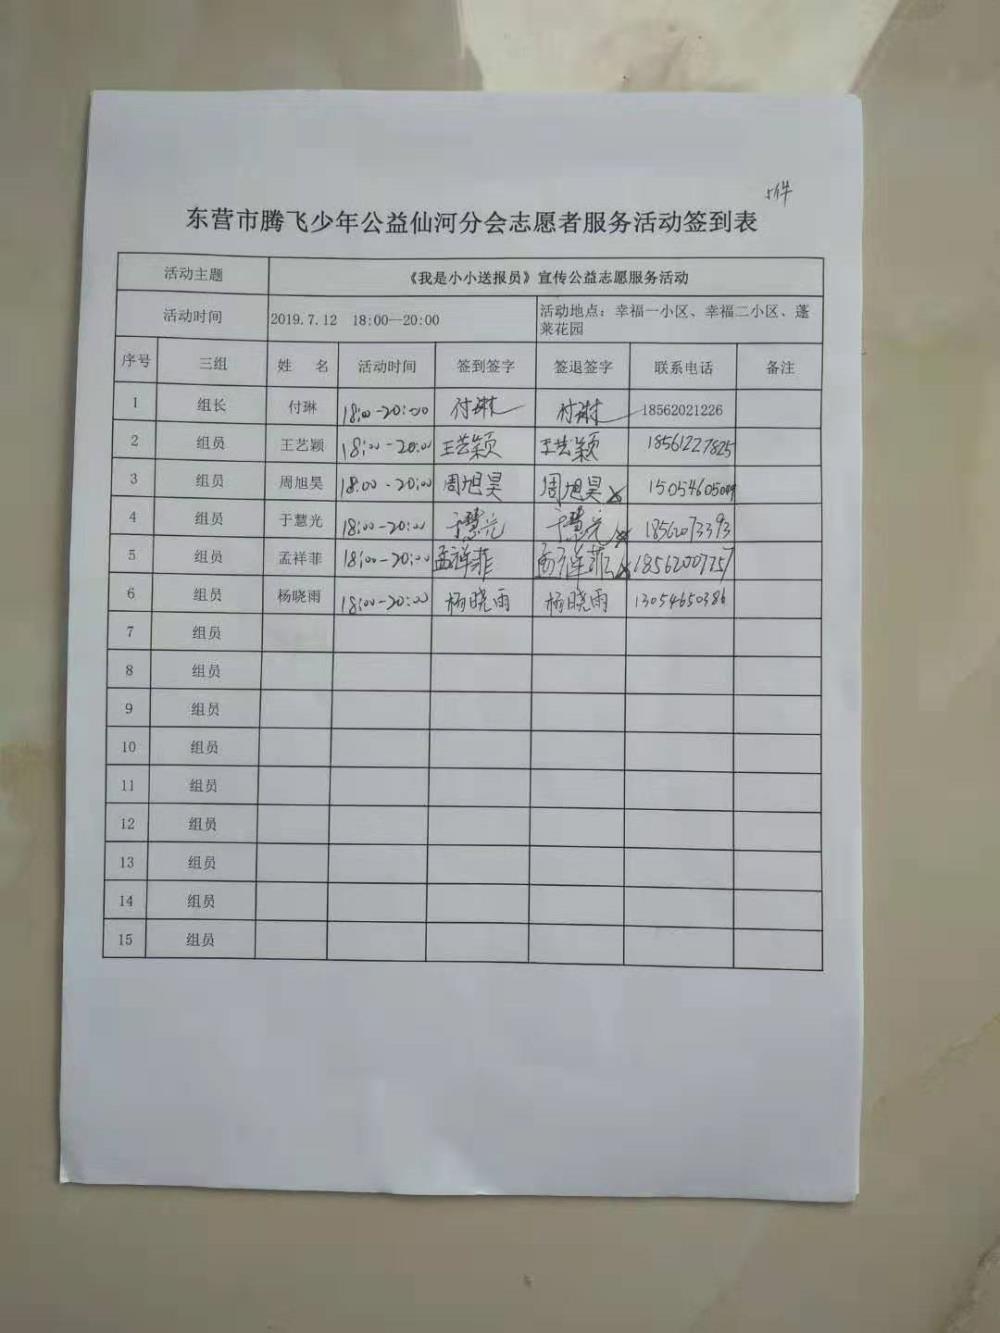 5件
东营市腾飞少年公益仙河分会志愿者服务活动签到表
活动主题 《我是小小送报员》宣传公益志愿服务活动
活动时间 2019.7.12 18:00—20:00 活动地点：幸福一小区、幸福二小区、蓬
莱花园
序号 三组 姓 名 活动时间 签到签字 签退签字 联系电话 备注
1 组长 付琳 18:00-20:00 付琳 付琳 18562021226
2 组员 王艺颖 18:00-20:00 王艺颖 王艺颖 18561227825
3 组员 周旭昊 18:00-20:00 周旭昊 周旭昊
4 组员 于慧光 18:00-20:00 于慧光 于慧光 18562073393
5 组员 孟祥菲 18:00-20:00 孟祥菲 孟祥菲
6 组员 杨晓雨 18:00-20:00 杨晓雨 杨晓雨 13054650386
7 组员
8 组员
9 组员
10 组员
11 组员
12 组员
13 组员
14 组员
15 组员